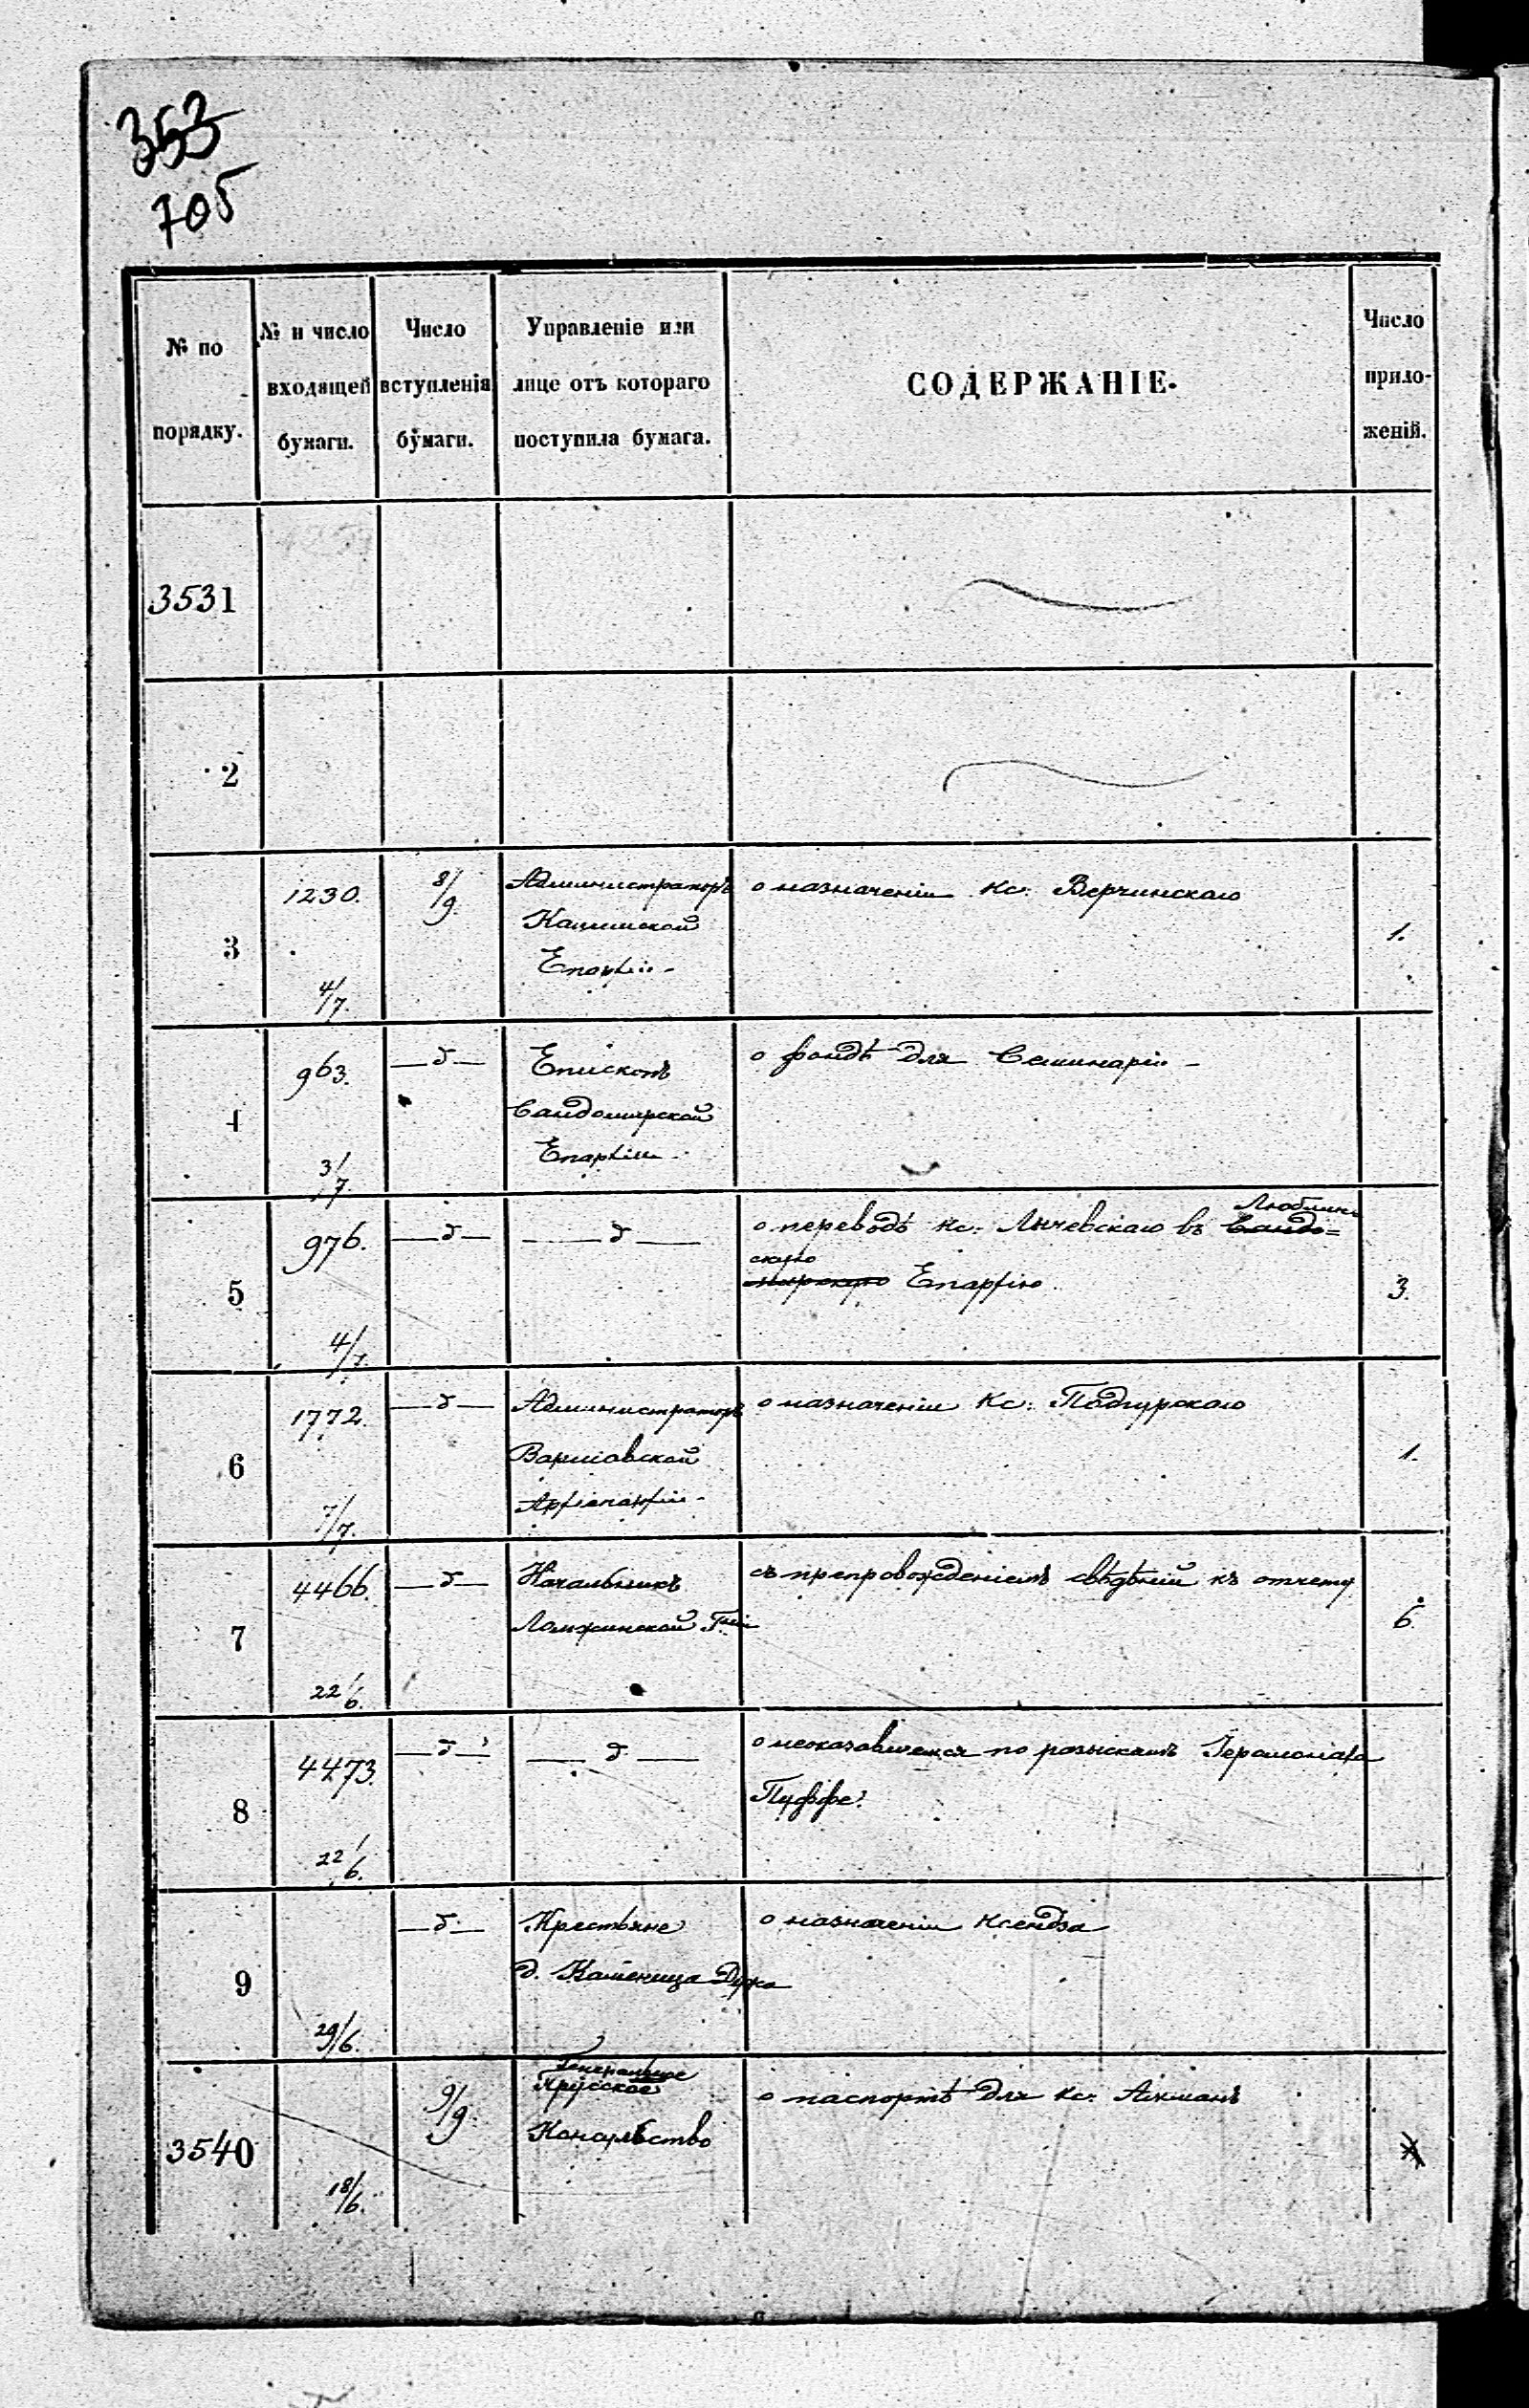 353
705
№ по порядку.
№ и число входящей бумаги.
Число вступленія бумаги.
Управленіе или лице отъ котораго поступила бумага.
СОДЕРЖАНІЕ.
Число приложеній.
3531
2
3
1230.
4/7.
8/9.
Администраторъ
Епархіи.
о назначеніи Кс. Верчинскаго
1.
4
963.
3/7.
—д—
Епископъ
Сандомирской
Епархіи.
о фондѣ для Семинаріи
5
976.
4/7.
—д—
—д—
о переводѣ Кс. Лычевскаго въ Сандо= Люблин
мирскую скую Епархію.
3.
6
1772.
7/7.
—д—
Администраторъ
Варшавской
Архіепархіи.
о назначеніи Кс. Подгурскаго
1.
7
4466.
22/6.
—д—
Начальникъ
Ломжинской Гніи
съ препровожденіемъ свѣдѣній къ отчету
6.
8
4473.
22/6.
—д—
—д—
о неоказавшемся по розыскамъ Іеромонаха
Пуффе.
9
29/6.
—д—
Крестьяне
д. Каменица
о назначеніи Ксендза
3540
18/6.
9/9.
Генеральное
Прусское
Консульство
о паспортѣ для Кс.